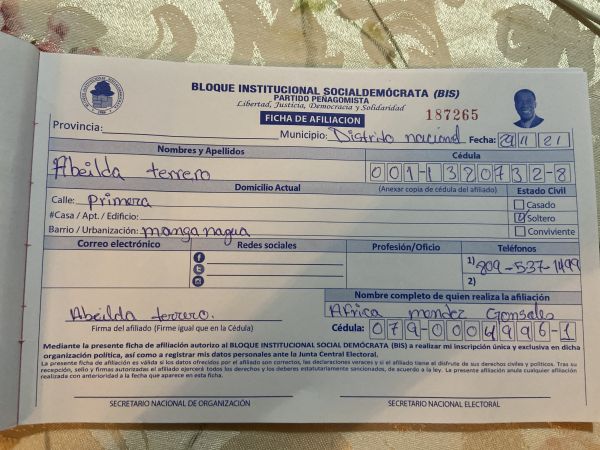 BLOQUE INSTITUCIONAL SOCIALDEMÓCRATA (BIS)
PARTIDO PEÑAGOMISTA
Libertad, Justicia, Democracia y Solidaridad
FICHA DE AFILIACION
187265
Provincia:
Municipio: Distrito nacional
Fecha: 21 11 21
Nombres y Apellidos
Cédula
Abeilda terrero
001-1320732-8
Domicilio Actual
(Anexar copia de cédula del afiliado)
Estado Civil
Calle: Primera
Casado
#Casa / Apt. / Edificio:
Soltero
Barrio / Urbanización: manganagua
Conviviente
Correo electrónico
Redes sociales
Profesión/Oficio
Teléfonos
1) 809-537-1499
2)
Nombre completo de quien realiza la afiliación
Abeilda terrero.
Africa mendez Gonsales
Firma del afiliado (Firme igual que en la Cédula)
Cédula: 079-0004996-1
Mediante la presente ficha de afiliación autorizo al BLOQUE INSTITUCIONAL SOCIAL DEMÓCRATA (BIS) a realizar mi inscripción única y exclusiva en dicha
organización política, así como a registrar mis datos personales ante la Junta Central Electoral.
La presente ficha de afiliación es válida si los datos ofrecidos por el afiliado son correctos, las declaraciones veraces y si el afiliado tiene el disfrute de sus derechos civiles y políticos. Tras su
recepción, sello y firmas autorizadas el afiliado ejercerá todos los derechos y los deberes estatutariamente sancionados, de acuerdo a la ley. La presente afiliación anula cualquier afiliación
realizada con anterioridad a la fecha que aparece en esta ficha.
SECRETARIO NACIONAL DE ORGANIZACIÓN
SECRETARIO NACIONAL ELECTORAL